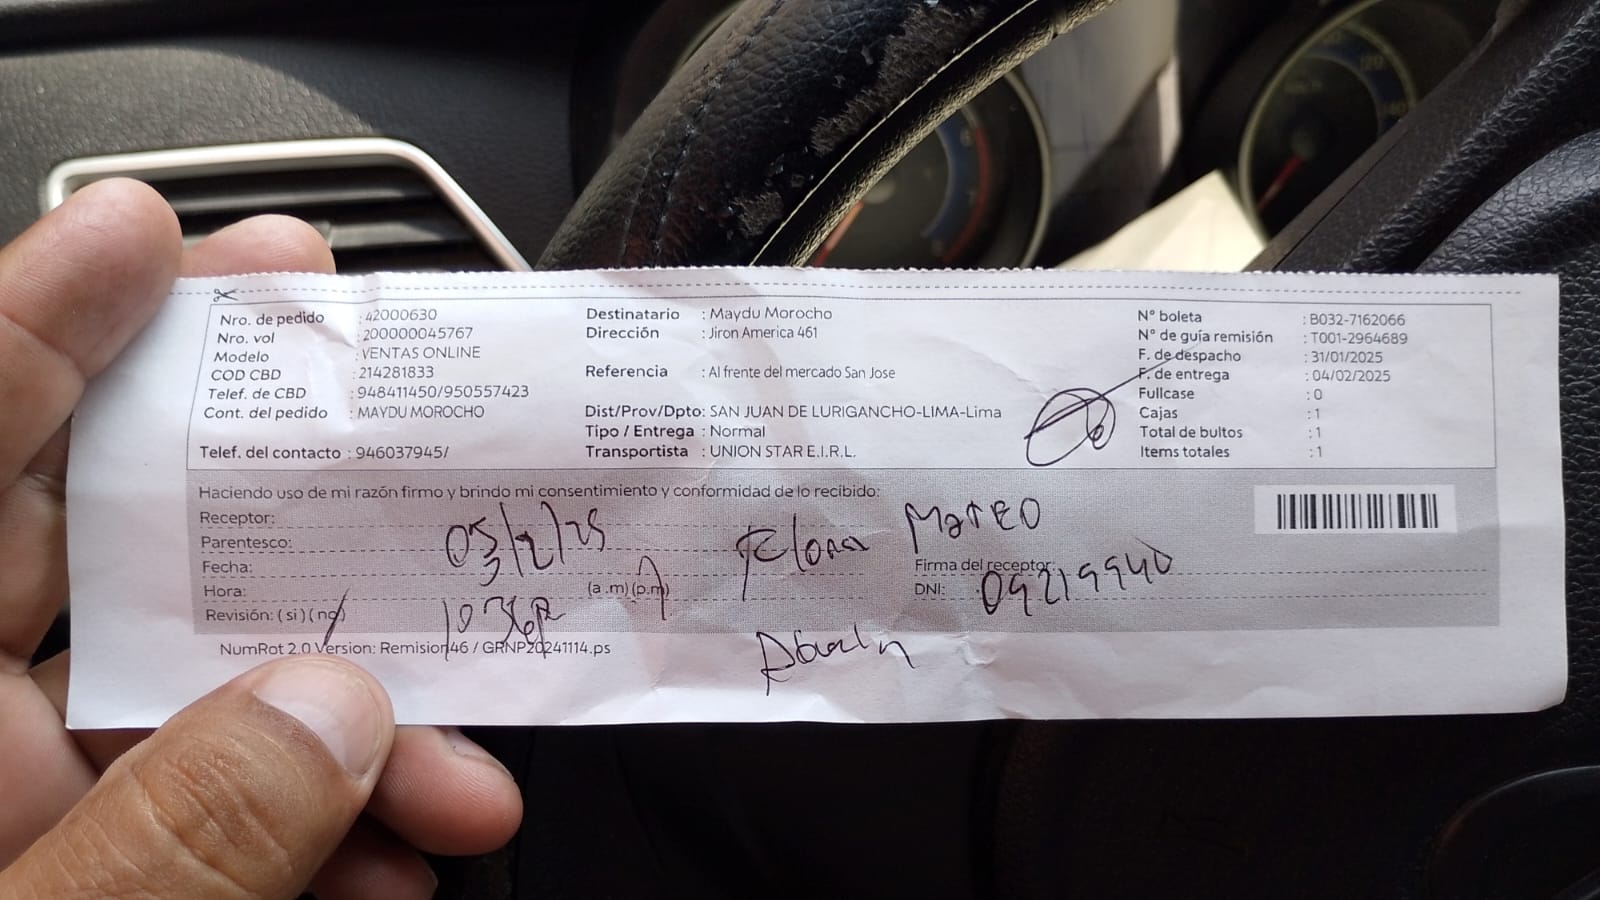 Nro. de pedido : 42000630
Nro. vol : 200000045767
Modelo : VENTAS ONLINE
COD CBD : 214281833
Telef. de CBD : 948411450/950557423
Cont. del pedido : MAYDU MOROCHO
Telef. del contacto : 946037945/
Destinatario : Maydu Morocho
Dirección : Jiron America 461
Referencia : Al frente del mercado San Jose
Dist/Prov/Dpto: SAN JUAN DE LURIGANCHO-LIMA-Lima
Tipo / Entrega : Normal
Transportista : UNION STAR E.I.R.L.
N° boleta : B032-7162066
N° de guía remisión : T001-2964689
F. de despacho : 31/01/2025
F. de entrega : 04/02/2025
Fullcase : 0
Cajas : 1
Total de bultos : 1
Items totales : 1
Haciendo uso de mi razón firmo y brindo mi consentimiento y conformidad de lo recibido:
Receptor: MATEO
Parentesco:
Fecha: 05/2/25
Hora: (a .m) (p.m)
Firma del receptor:
DNI: 09219940
Revisión: ( si ) ( no)
NumRot 2.0 Version: Remision46 / GRNP20241114.ps